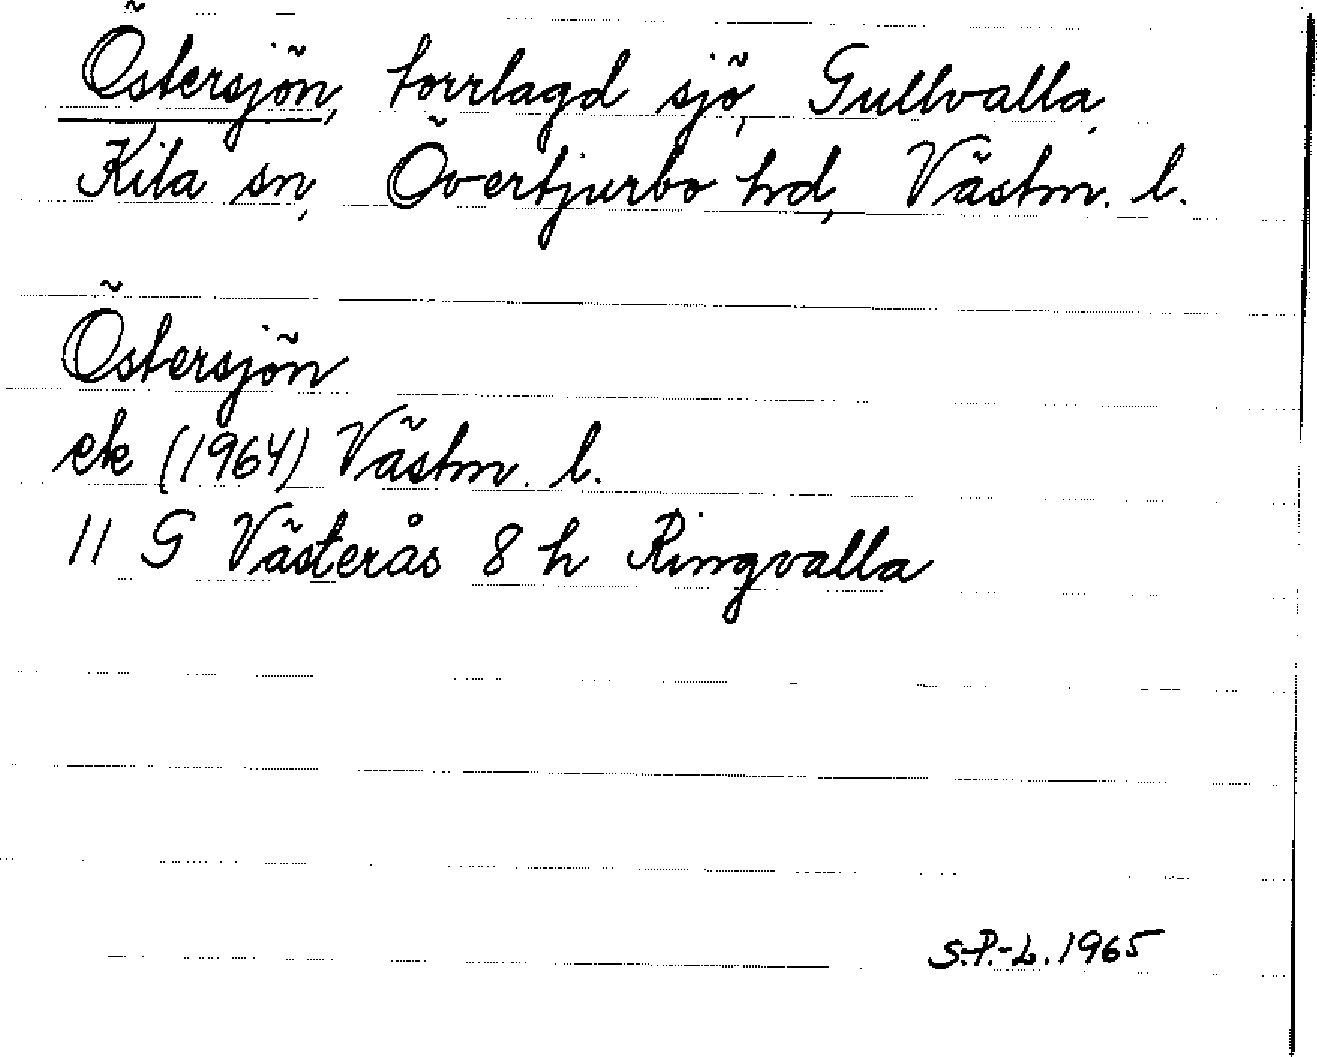 Östersjön, torrlagd sjö, Gullvalla,
Kila sn, Övertjurbo hd, Västm. l.
Östersjön
ek (1964) Västm. l.
11 G Västerås 8 h Ringvalla
S.P.-L. 1965